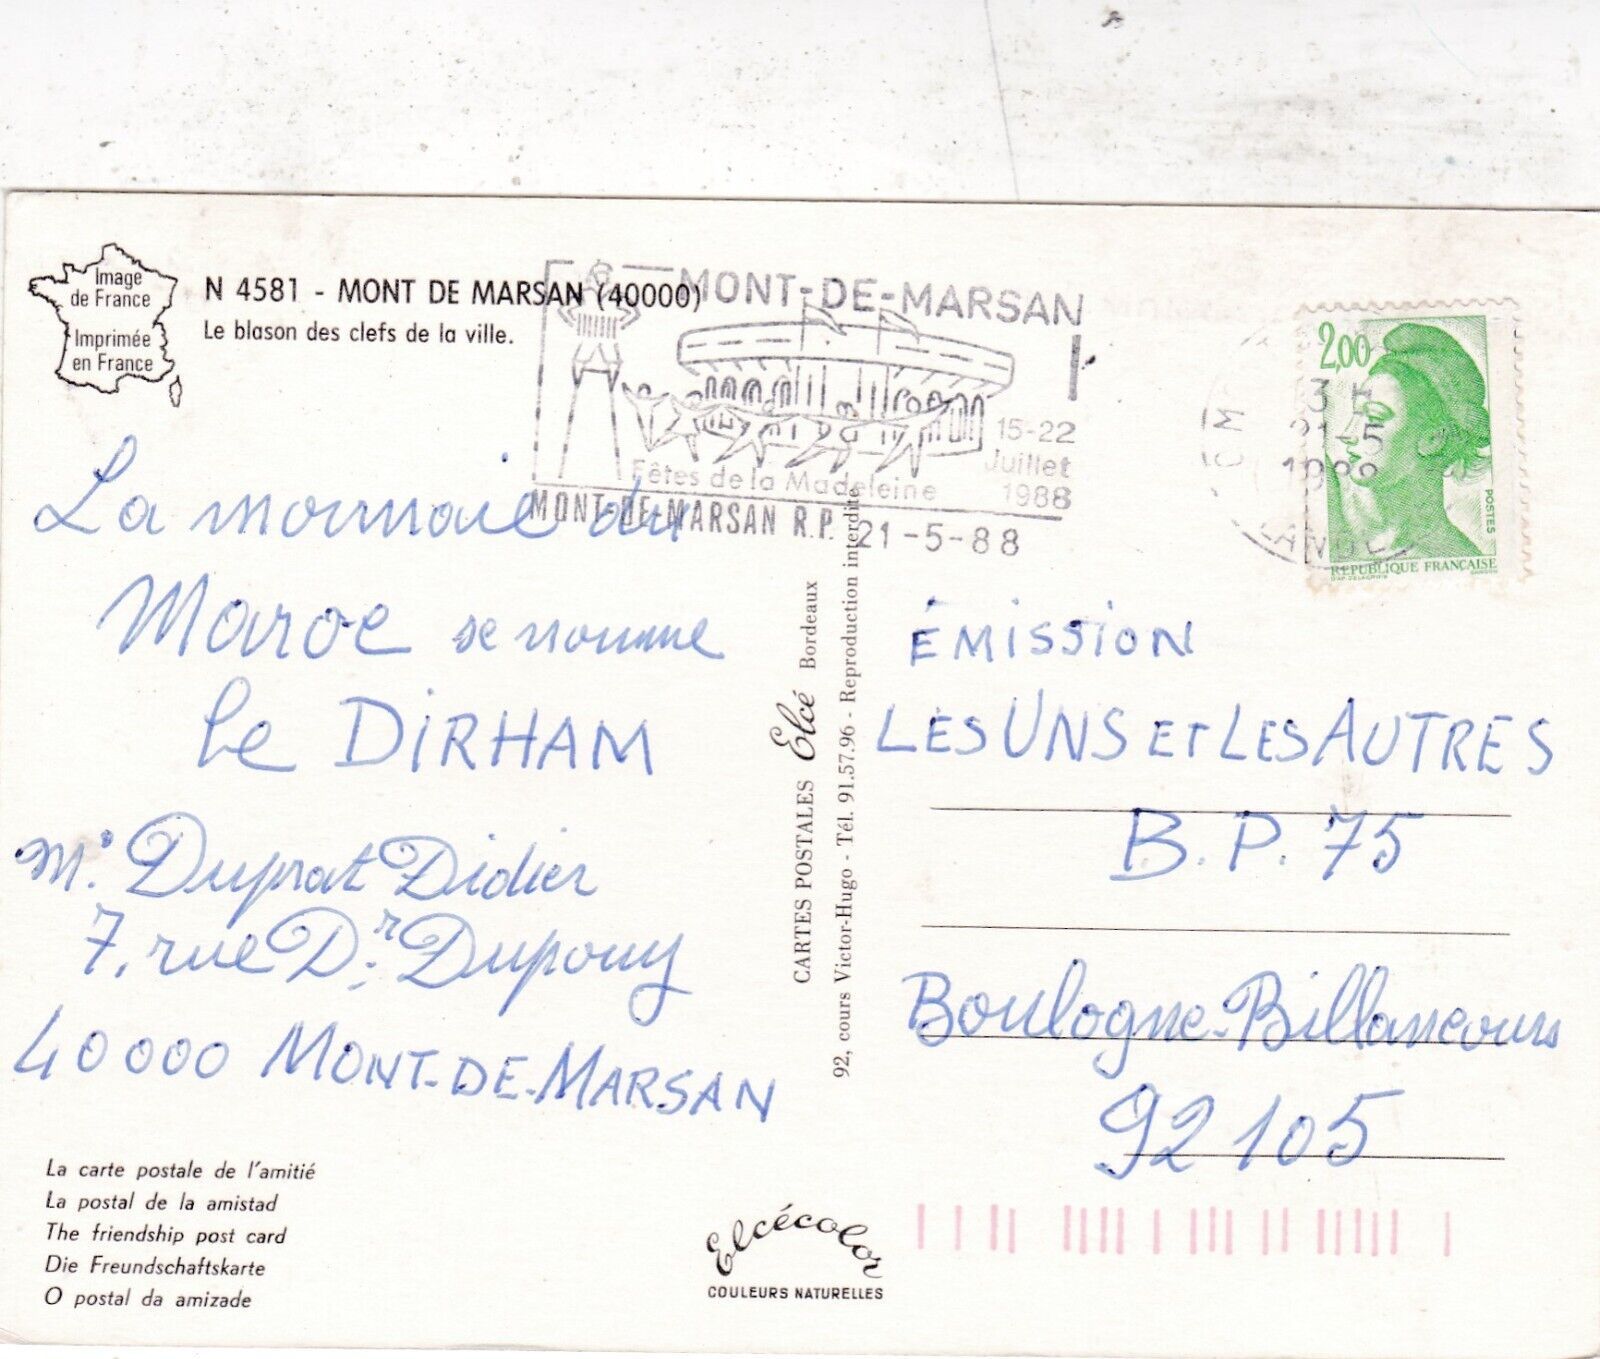 Image
de France
Imprimée
en France
N 4581 - MONT DE MARSAN (40000)
Le blason des clefs de la ville.
MONT-DE-MARSAN
15-22
Juillet
1988
Fêtes de la Madeleine
MONT-DE-MARSAN R.P. 21-5-88
2,00
21-5
1988
POSTES
REPUBLIQUE FRANÇAISE
La monnaie du
Maroc se nomme
le DIRHAM
Mr Duprat Didier
7, rue Dr Dupouy
40000 MONT-DE-MARSAN
CARTES POSTALES Elcé Bordeaux
92, cours Victor-Hugo - Tél. 91.57.96 - Reproduction interdite
ÉMISSION
LES UNS ET LES AUTRES
B.P. 75
Boulogne-Billancourt
92105
La carte postale de l'amitié
La postal de la amistad
The friendship post card
Die Freundschaftskarte
O postal da amizade
Elcécolor
COULEURS NATURELLES